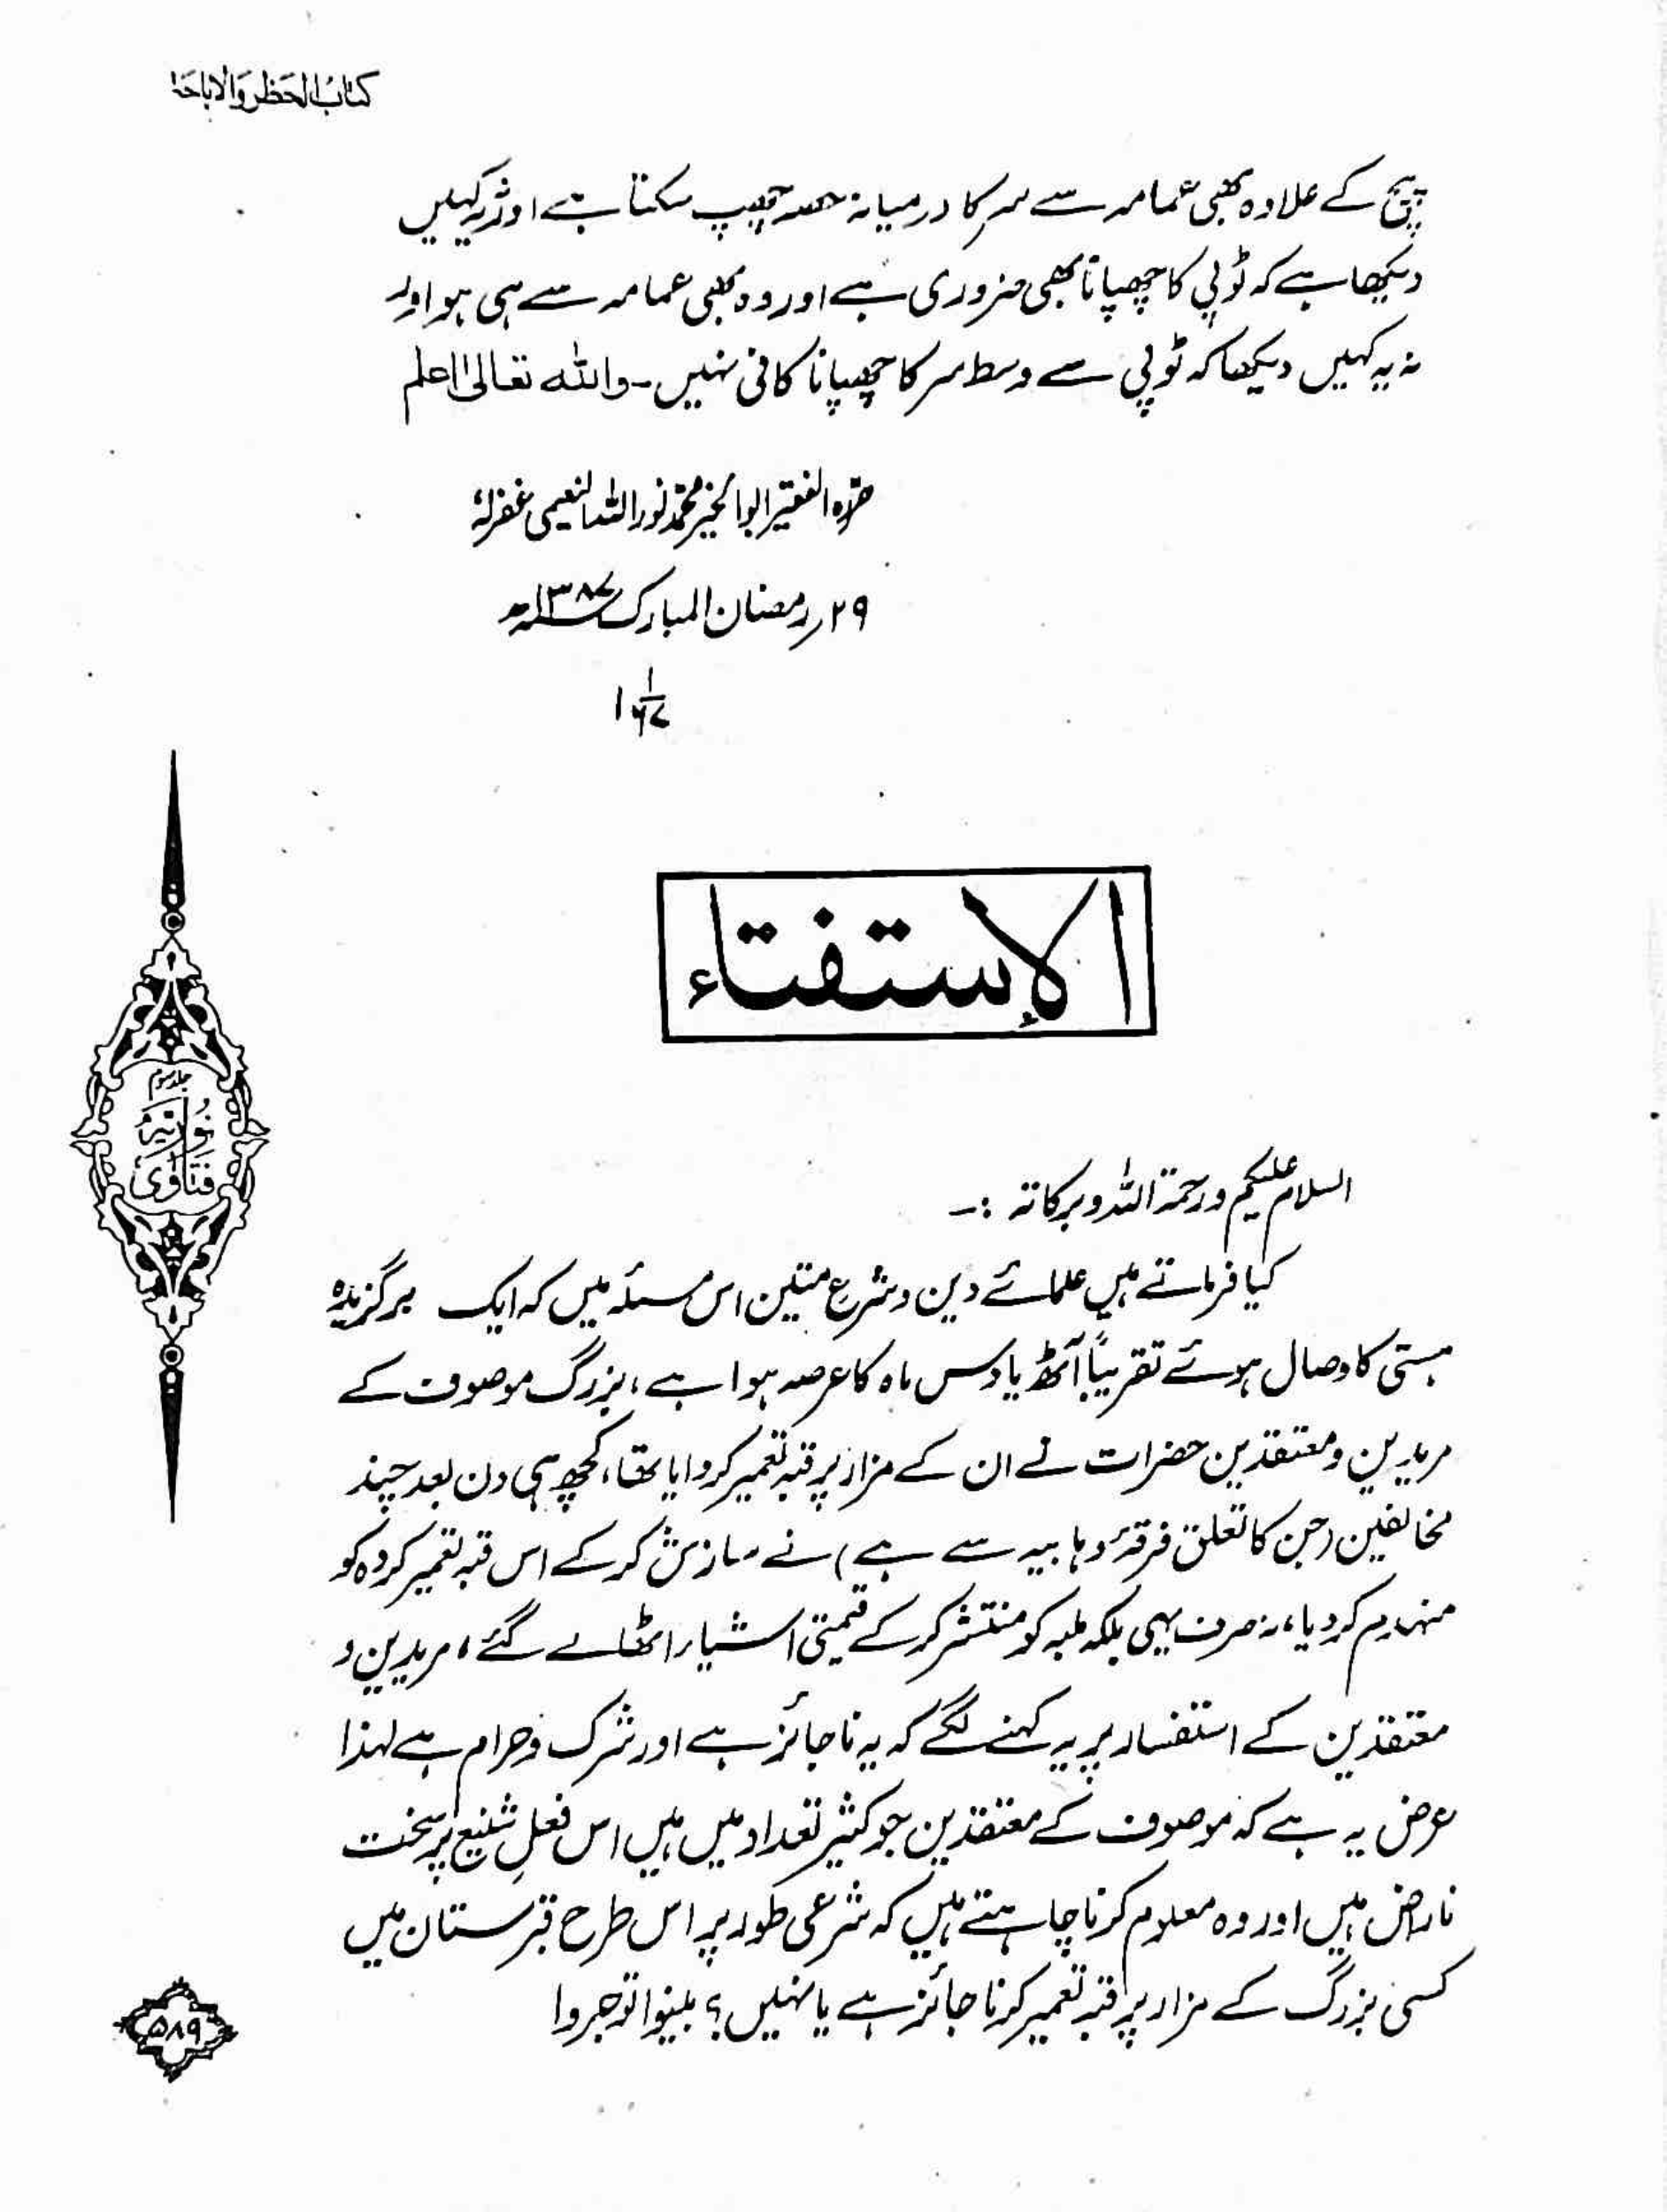 کتابُ الحَظر وَالاباحَۃ
پیچ کے علاوہ بھی عمامہ سے سر کا درمیانہ حصہ چھپ سکتا ہے اور نہ کہیں
دیکھا ہے کہ ٹوپی کا چھپانا بھی ضروری ہے اور وہ بھی عمامہ سے ہی ہو اور
نہ یہ کہیں دیکھا کہ ٹوپی سے وسط سر کا چھپانا کافی نہیں۔ واللہ تعالیٰ اعلم
حرّرہ الفقیر ابوالخیر محمّد نور اللہ النعیمی غفرلہٗ
۲۹ر رمضان المبارک ۱۳۸۷ھ
الإستفتاء
السلام علیکم ورحمۃ اللہ وبرکاتہ :۔
کیا فرماتے ہیں علمائے دین و شرع متین اس مسئلہ میں کہ ایک برگزیدہ
ہستی کا وصال ہوئے تقریباً آٹھ یا دس ماہ کا عرصہ ہوا ہے، بزرگ موصوف کے
مریدین و معتقدین حضرات نے ان کے مزار پر قبہ تعمیر کروایا تھا، کچھ ہی دن بعد چند
مخالفین (جن کا تعلق فرقۂ وہابیہ سے ہے) نے سازش کر کے اس قبہ تعمیر کردہ کو
منہدم کر دیا، نہ صرف یہی بلکہ ملبہ کو منتشر کر کے قیمتی اشیاء اٹھا لے گئے، مریدین و
معتقدین کے استفسار پر یہ کہنے لگے کہ یہ ناجائز ہے اور شرک و حرام ہے لہذا
عرض یہ ہے کہ موصوف کے معتقدین جو کثیر تعداد میں ہیں اس فعلِ شنیع پر سخت
ناراض ہیں اور وہ معلوم کرنا چاہتے ہیں کہ شرعی طور پر اس طرح قبرستان میں
کسی بزرگ کے مزار پر قبہ تعمیر کرنا جائز ہے یا نہیں؟ بینوا توجروا
جلد سوم
نُورِیَّہ
فتاوٰی
۵۸۹